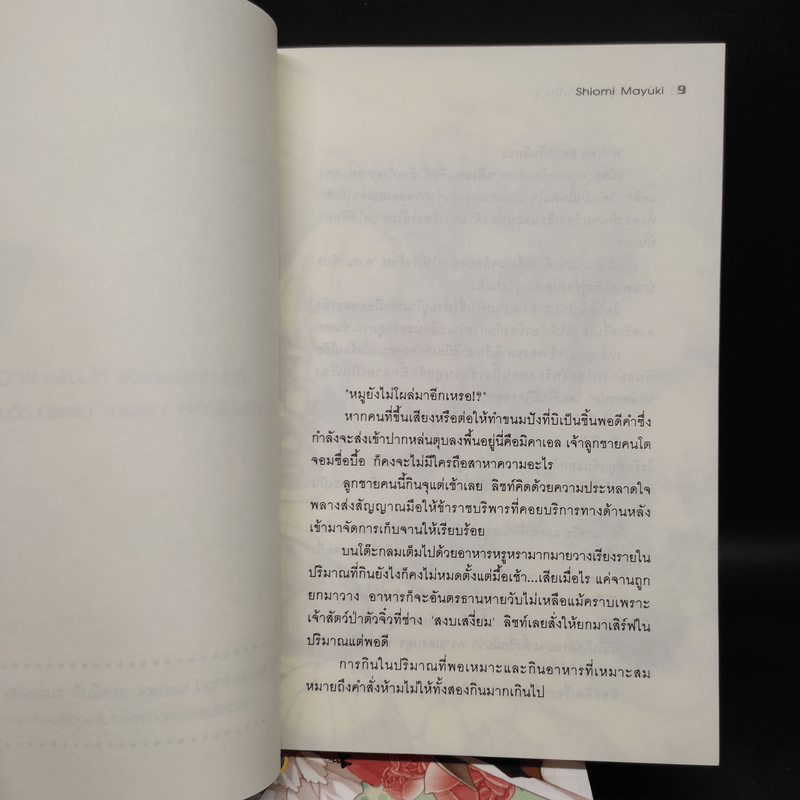 Shiomi Mayuki 9
"หมูยังไม่โผล่มาอีกเหรอ!?"
หากคนที่ขึ้นเสียงหรือต่อให้ทำขนมปังที่บิเป็นชิ้นพอดีคำซึ่ง
กำลังจะส่งเข้าปากหล่นตุบลงพื้นอยู่นี่คือมิคาเอล เจ้าลูกชายคนโต
จอมซื่อบื้อ ก็คงจะไม่มีใครถือสาหาความอะไร
ลูกชายคนนี้กินจุแต่เช้าเลย ลิชท์คิดด้วยความประหลาดใจ
พลางส่งสัญญาณมือให้ข้าราชบริพารที่คอยบริการทางด้านหลัง
เข้ามาจัดการเก็บจานให้เรียบร้อย
บนโต๊ะกลมเต็มไปด้วยอาหารหรูหรามากมายวางเรียงรายใน
ปริมาณที่กินยังไงก็คงไม่หมดตั้งแต่มื้อเช้า...เสียเมื่อไร แค่จานถูก
ยกมาวาง อาหารก็จะอันตรธานหายวับไม่เหลือแม้คราบเพราะ
เจ้าสัตว์ป่าตัวจิ๋วที่ช่าง 'สงบเสงี่ยม' ลิชท์เลยสั่งให้ยกมาเสิร์ฟใน
ปริมาณแต่พอดี
การกินในปริมาณที่พอเหมาะและกินอาหารที่เหมาะสม
หมายถึงคำสั่งห้ามไม่ให้ทั้งสองกินมากเกินไป